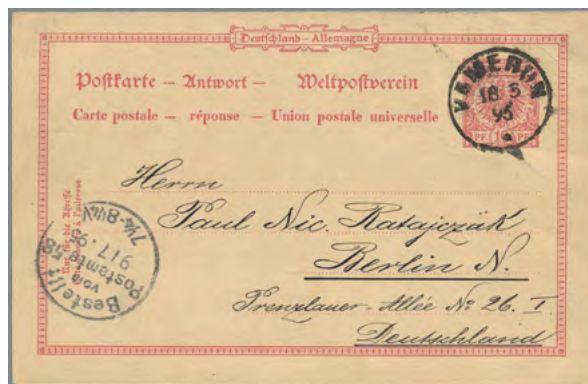 Deutschland – Allemagne
Postkarte – Antwort – Weltpostverein
Carte postale – réponse – Union postale universelle
KAMERUN
18 5
95
PF 10 PF
Herrn
Paul Nic. Ratajczak
Berlin N.
Prenzlauer-Allée No 26. I
Deutschland
Nur für die Adresse
Bestellt
vom
Postamte
9/7.95